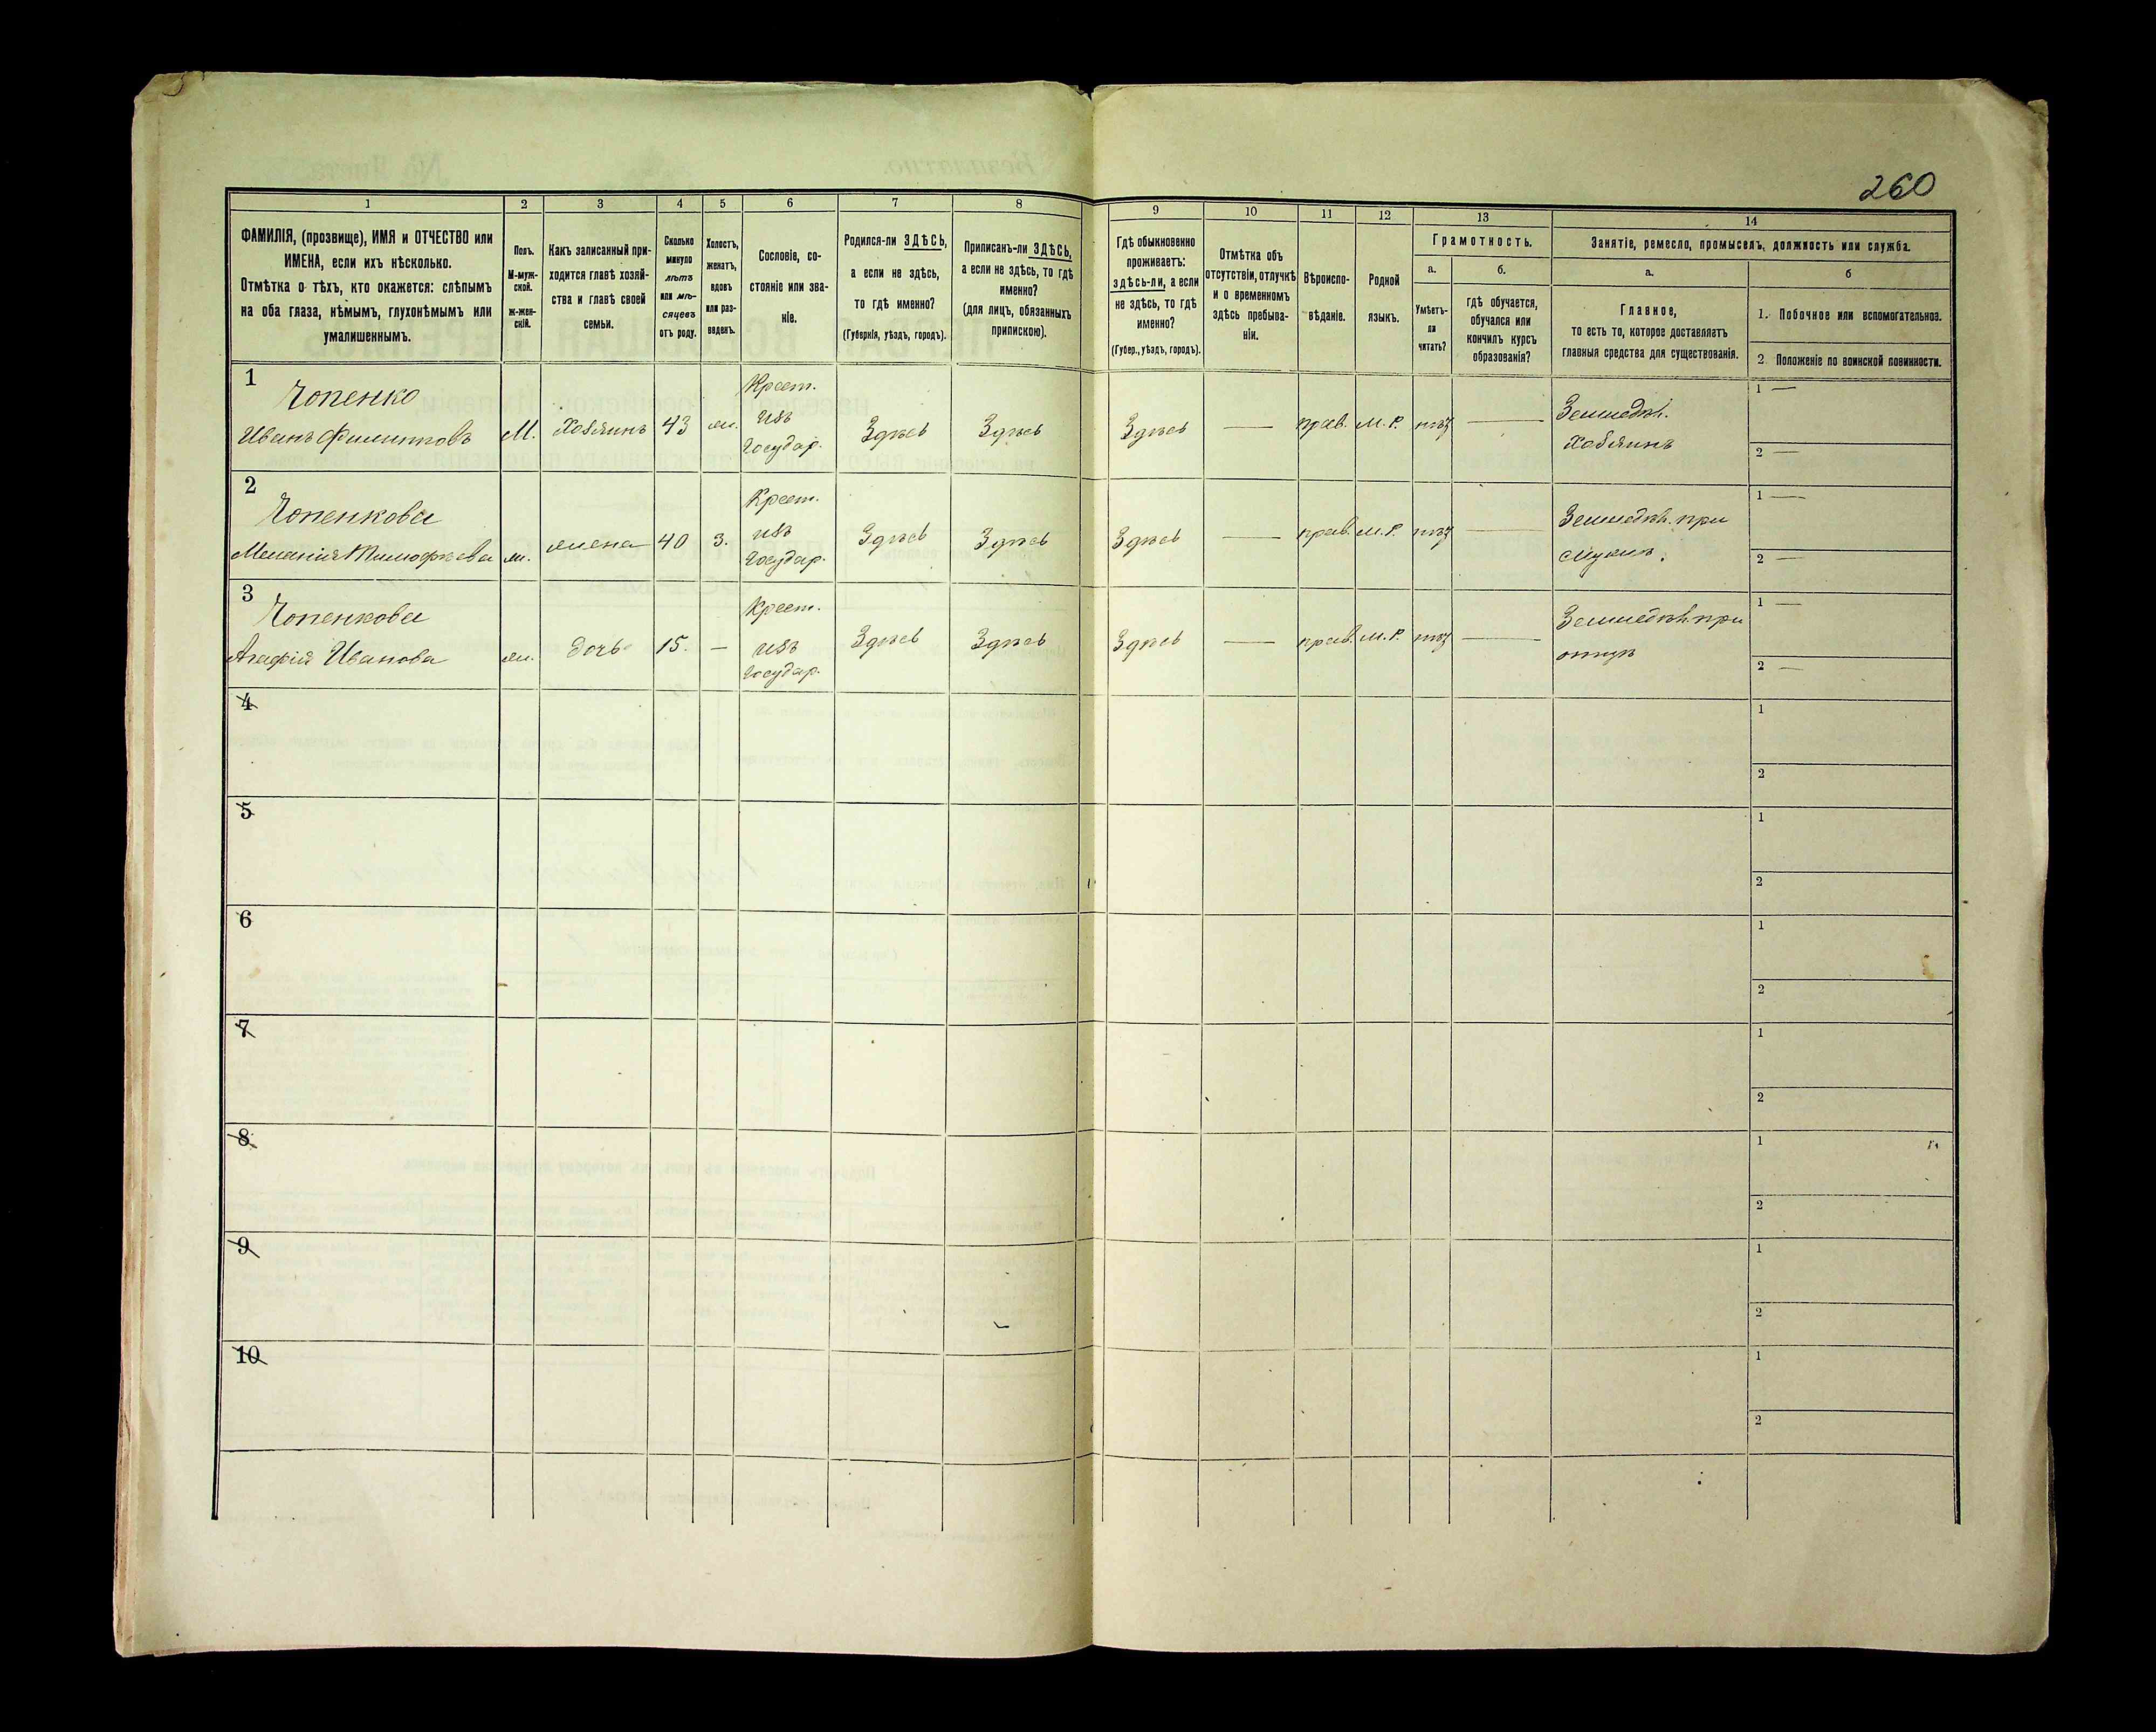 260
1 2 3 4 5 6 7 8 9 10 11 12 13 14
ФАМИЛІЯ, (прозвище), ИМЯ и ОТЧЕСТВО или
ИМЕНА, если ихъ нѣсколько.
Отмѣтка о тѣхъ, кто окажется: слѣпымъ
на оба глаза, нѣмымъ, глухонѣмымъ или
умалишеннымъ.
Полъ.
М-муж-
ской.
ж-жен-
скій.
Какъ записанный при-
ходится главѣ хозяй-
ства и главѣ своей
семьи.
Сколько
минуло
лѣтъ
или мѣ-
сяцевъ
отъ роду.
Холостъ,
женатъ,
вдовъ
или раз-
веденъ.
Сословіе, со-
стояніе или зва-
ніе.
Родился-ли ЗДѢСЬ,
а если не здѣсь,
то гдѣ именно?
(Губернія, уѣздъ, городъ).
Приписанъ-ли ЗДѢСЬ,
а если не здѣсь, то гдѣ
именно?
(для лицъ, обязанныхъ
припискою).
Гдѣ обыкновенно
проживаетъ:
здѣсь-ли, а если
не здѣсь, то гдѣ
именно?
(Губер., уѣздъ, городъ).
Отмѣтка объ
отсутствіи, отлучкѣ
и о временномъ
здѣсь пребыва-
ніи.
Вѣроиспо-
вѣданіе.
Родной
языкъ.
Грамотность.
а.
Умѣетъ-
ли
читать?
б.
гдѣ обучается,
обучался или
кончилъ курсъ
образованія?
Занятіе, ремесло, промыселъ, должность или служба.
а.
Главное,
то есть то, которое доставляетъ
главныя средства для существованія.
б
1. Побочное или вспомогательное.
2. Положеніе по воинской повинности.
1
Чопенко
Иванъ Филипповъ
М.
Хозяинъ
43
ж.
Крест.
изъ
Государ.
Здѣсь
Здѣсь
Здѣсь
—
прав.
М. Р.
нѣтъ
—
Земледѣл.
Хозяинъ
1 —
2 —
2
Чопенкова
Меланія Тимофѣева
ж.
жена
40
З.
Крест.
изъ
Государ.
Здѣсь
Здѣсь
Здѣсь
—
прав.
М. Р.
нѣтъ
—
Земледѣл. при
мужѣ.
1 —
2 —
3
Чопенкова
Агафія Иванова
ж.
дочь
15.
—
Крест.
изъ
Государ.
Здѣсь
Здѣсь
Здѣсь
—
прав.
М. Р.
нѣтъ
—
Земледѣл. при
отцѣ
1 —
2 —
4
1
2
5
1
2
6
1
2
7
1
2
8
1
2
9
1
2
10
1
2